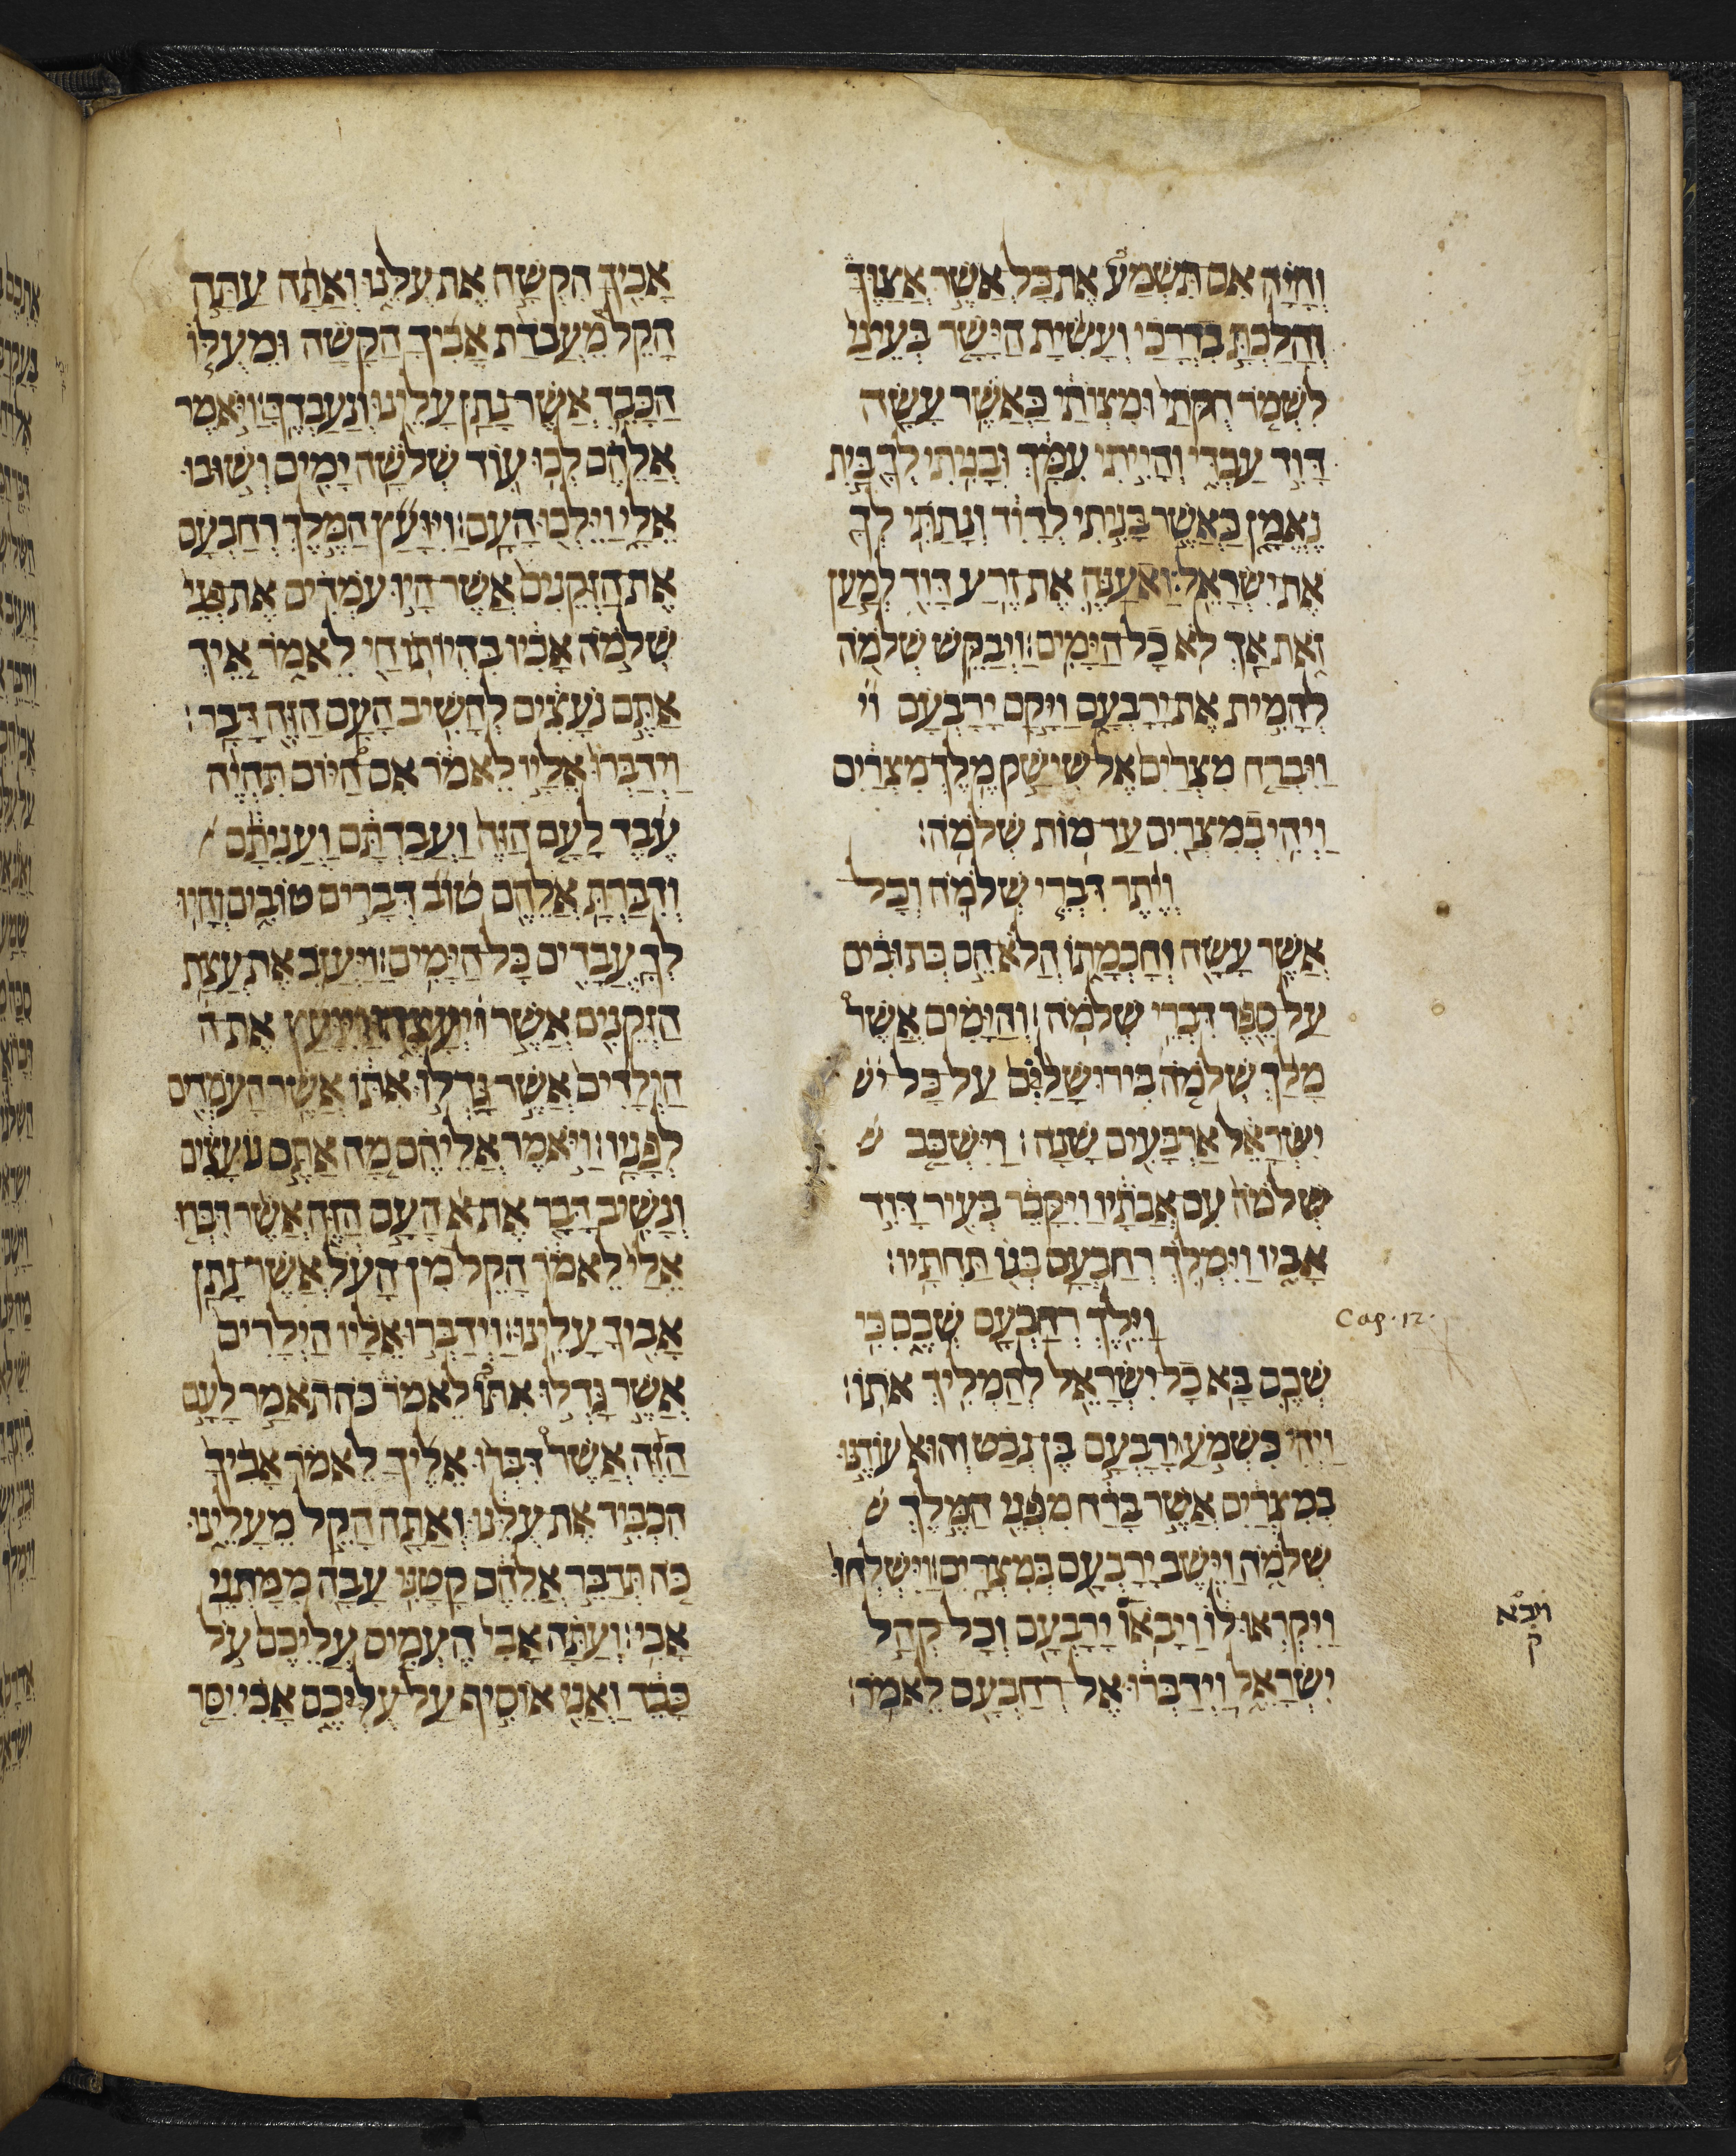 והיה אם תשמע את כל אשר אצוך
והלכת בדרכי ועשית הישר בעיני
לשמר חקתי ומצותי כאשר עשה
דוד עבדי והייתי עמך ובניתי לך בית
נאמן כאשר בניתי לדוד ונתתי לך
את ישראל׃ ואענה את זרע דוד למען
זאת אך לא כל הימים׃ ויבקש שלמה
להמית את ירבעם ויקם ירבעם וי
ויברח מצרים אל שישק מלך מצרים
ויהי במצרים עד מות שלמה׃
ויתר דברי שלמה וכל
אשר עשה וחכמתו הלא הם כתובים
על ספר דברי שלמה׃ והימים אשר
מלך שלמה בירושלם על כל יש
ישראל ארבעים שנה׃ וישכב ש
שלמה עם אבתיו ויקבר בעיר דוד
אביו וימלך רחבעם בנו תחתיו׃
וילך רחבעם שכם כי
שכם בא כל ישראל להמליך אתו׃
ויהי כשמע ירבעם בן נבט והוא עודנו
במצרים אשר ברח מפני המלך ש
שלמה וישב ירבעם במצרים׃ וישלחו
ויקראו לו ויבאו ירבעם וכל קהל
ישראל וידברו אל רחבעם לאמר׃
אביך הקשה את עלנו ואתה עתה
הקל מעבדת אביך הקשה ומעלו
הכבד אשר נתן עלינו ונעבדך׃ ויאמר
אליהם לכו עוד שלשה ימים ושובו
אלי וילכו העם׃ ויועץ המלך רחבעם
את הזקנים אשר היו עמדים את פני
שלמה אביו בהיותו חי לאמר איך
אתם נועצים להשיב העם הזה דבר׃
וידברו אליו לאמר אם היום תהיה
עבד לעם הזה ועבדתם ועניתם
ודברת אליהם טוב דברים טובים והיו
לך עבדים כל הימים׃ ויעזב את עצת
הזקנים אשר ויעצהו ויועץ את ה
הילדים אשר גדלו אתו אשר העמדים
לפניו׃ ויאמר אליהם מה אתם נועצים
ונשיב דבר את א העם הזה אשר דברו
אלי לאמר הקל מן העל אשר נתן
אביך עלינו׃ וידברו אליו הילדים
אשר גדלו אתו לאמר כה תאמר לעם
הזה אשר דברו אליך לאמר אביך
הכביד את עלנו ואתה הקל מעלינו
כה תדבר אליהם קטני עבה ממתני
אבי׃ ועתה אבי העמיס עליכם על
כבד ואני אוסיף על עלכם אבי יסר
Cap. 12.
ויבא
ק